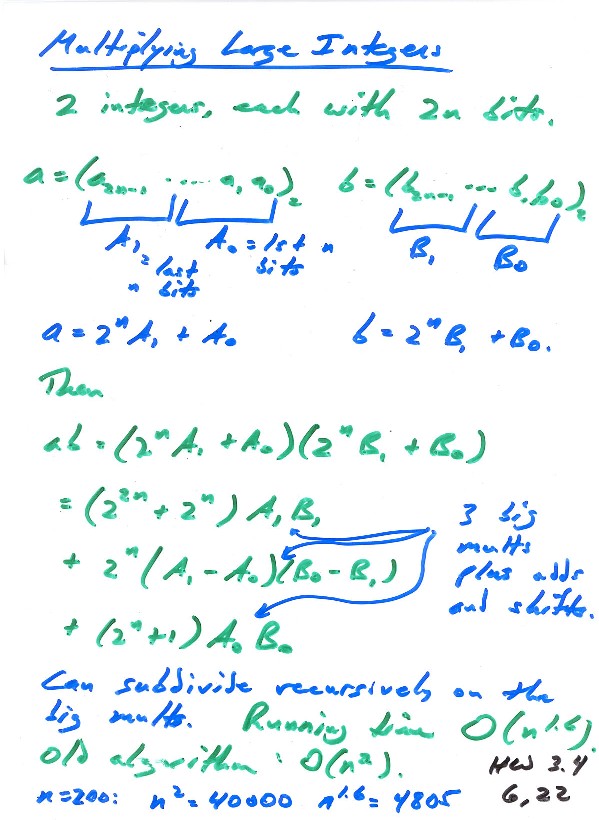 Multiplying Large Integers
2 integers, each with 2n bits.
a = (a₂ₙ₋₁ ..... a₁ a₀)₂ b = (b₂ₙ₋₁ ... b₁ b₀)₂
A₁ = last n bits A₀ = 1st n bits B₁ B₀
a = 2ⁿA₁ + A₀ b = 2ⁿB₁ + B₀.
Then
ab = (2ⁿA₁ + A₀)(2ⁿB₁ + B₀)
= (2²ⁿ + 2ⁿ) A₁B₁
+ 2ⁿ(A₁ - A₀)(B₀ - B₁)
+ (2ⁿ+1) A₀B₀
3 big
mults
plus adds
and shifts.
Can subdivide recursively on the
big mults. Running time O(n^1.6).
Old algorithm: O(n²).
n=200: n² = 40000 n^1.6 = 4805
HW 3.4
6, 22